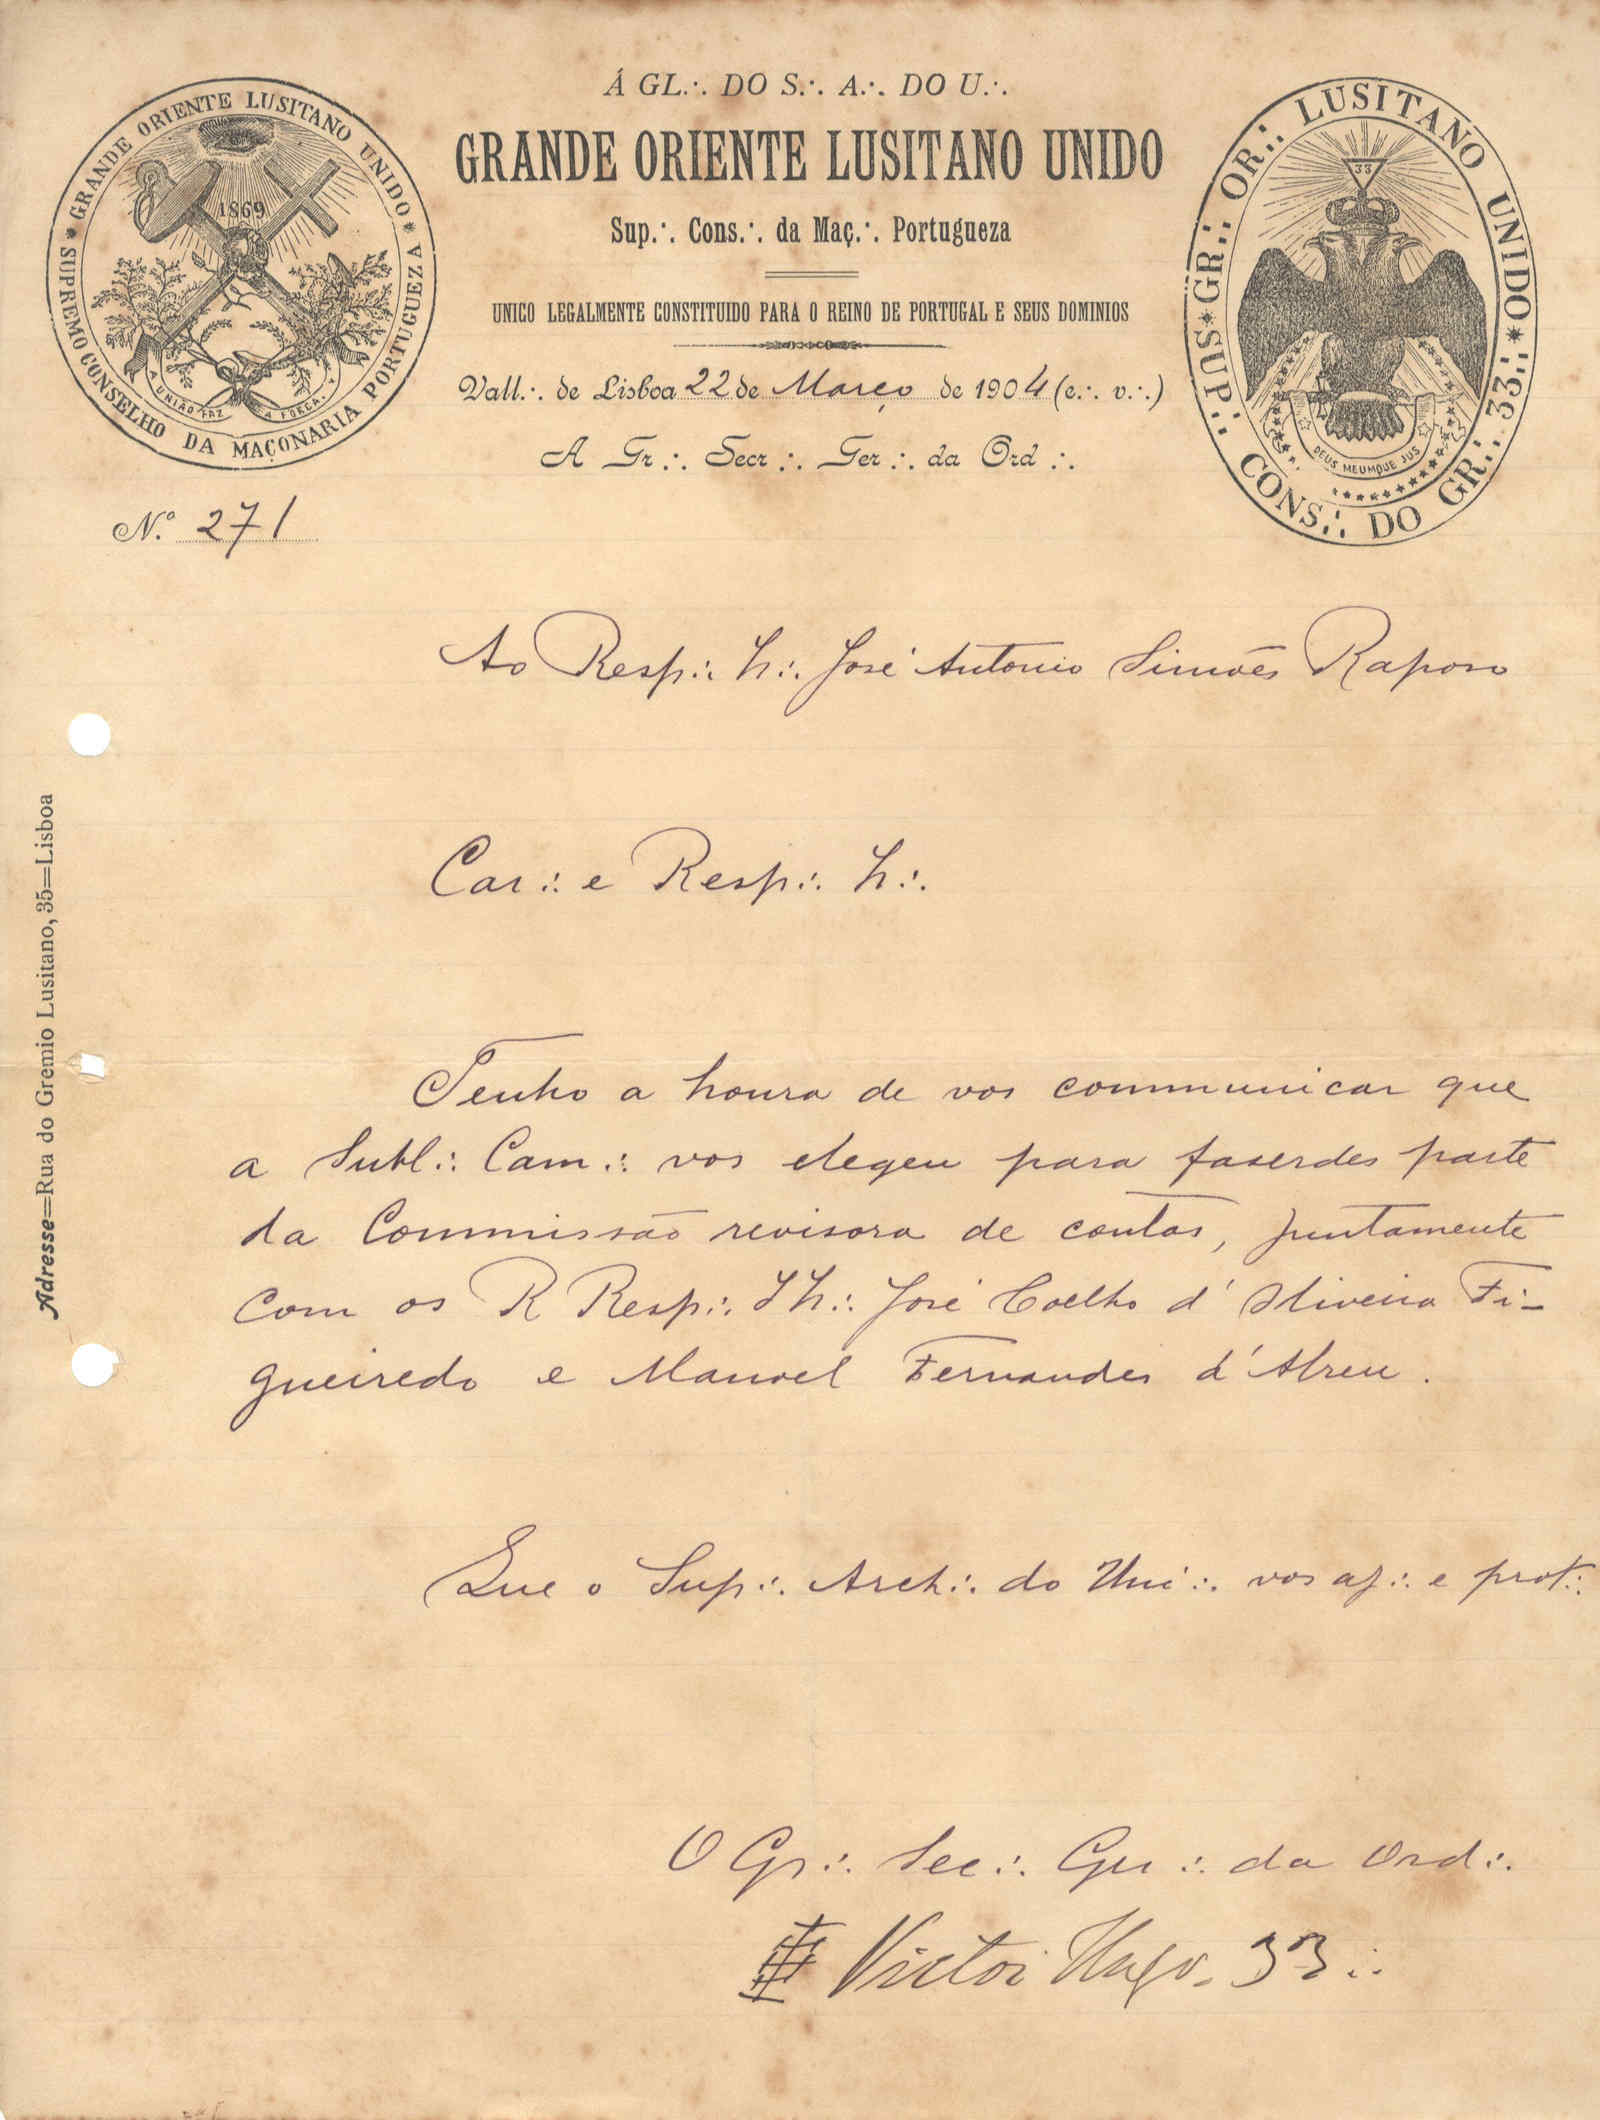 Á GL.·. DO S.·. A.·. DO U.·.
GRANDE ORIENTE LUSITANO UNIDO
Sup.·. Cons.·. da Maç.·. Portugueza
UNICO LEGALMENTE CONSTITUIDO PARA O REINO DE PORTUGAL E SEUS DOMINIOS
Vall.·. de Lisboa 22 de Março de 1904 (e.·. v.·.)
A Gr.·. Secr.·. Ger.·. da Ord.·.
* GRANDE ORIENTE LUSITANO UNIDO *
SUPREMO CONSELHO DA MAÇONARIA PORTUGUEZA
1869
A UNIÃO FAZ A FORÇA
GR.·. OR.·. LUSITANO UNIDO *
SUP.·. CONS.·. DO GR.·. 33.·. *
33
DEUS MEUMQUE JUS
N.º 271
Ao Resp.·. h.·. José Antonio Simões Raposo
Car.·. e Resp.·. h.·.
Tenho a honra de vos communicar que
a Subl.·. Cam.·. vos elegeu para faserdes parte
da Commissão revisora de contas, juntamente
com os R Resp.·. Ih.·. José Coelho d'Oliveira Fi-
gueiredo e Manoel Fernandes d'Abreu.
Que o Sup.·. Arch.·. do Uni.·. vos aj.·. e prot.·.
O Gr.·. Sec.·. Ger.·. da Ord.·.
Victor Hugo. 33.·.
Adresse=Rua do Gremio Lusitano, 35=Lisboa